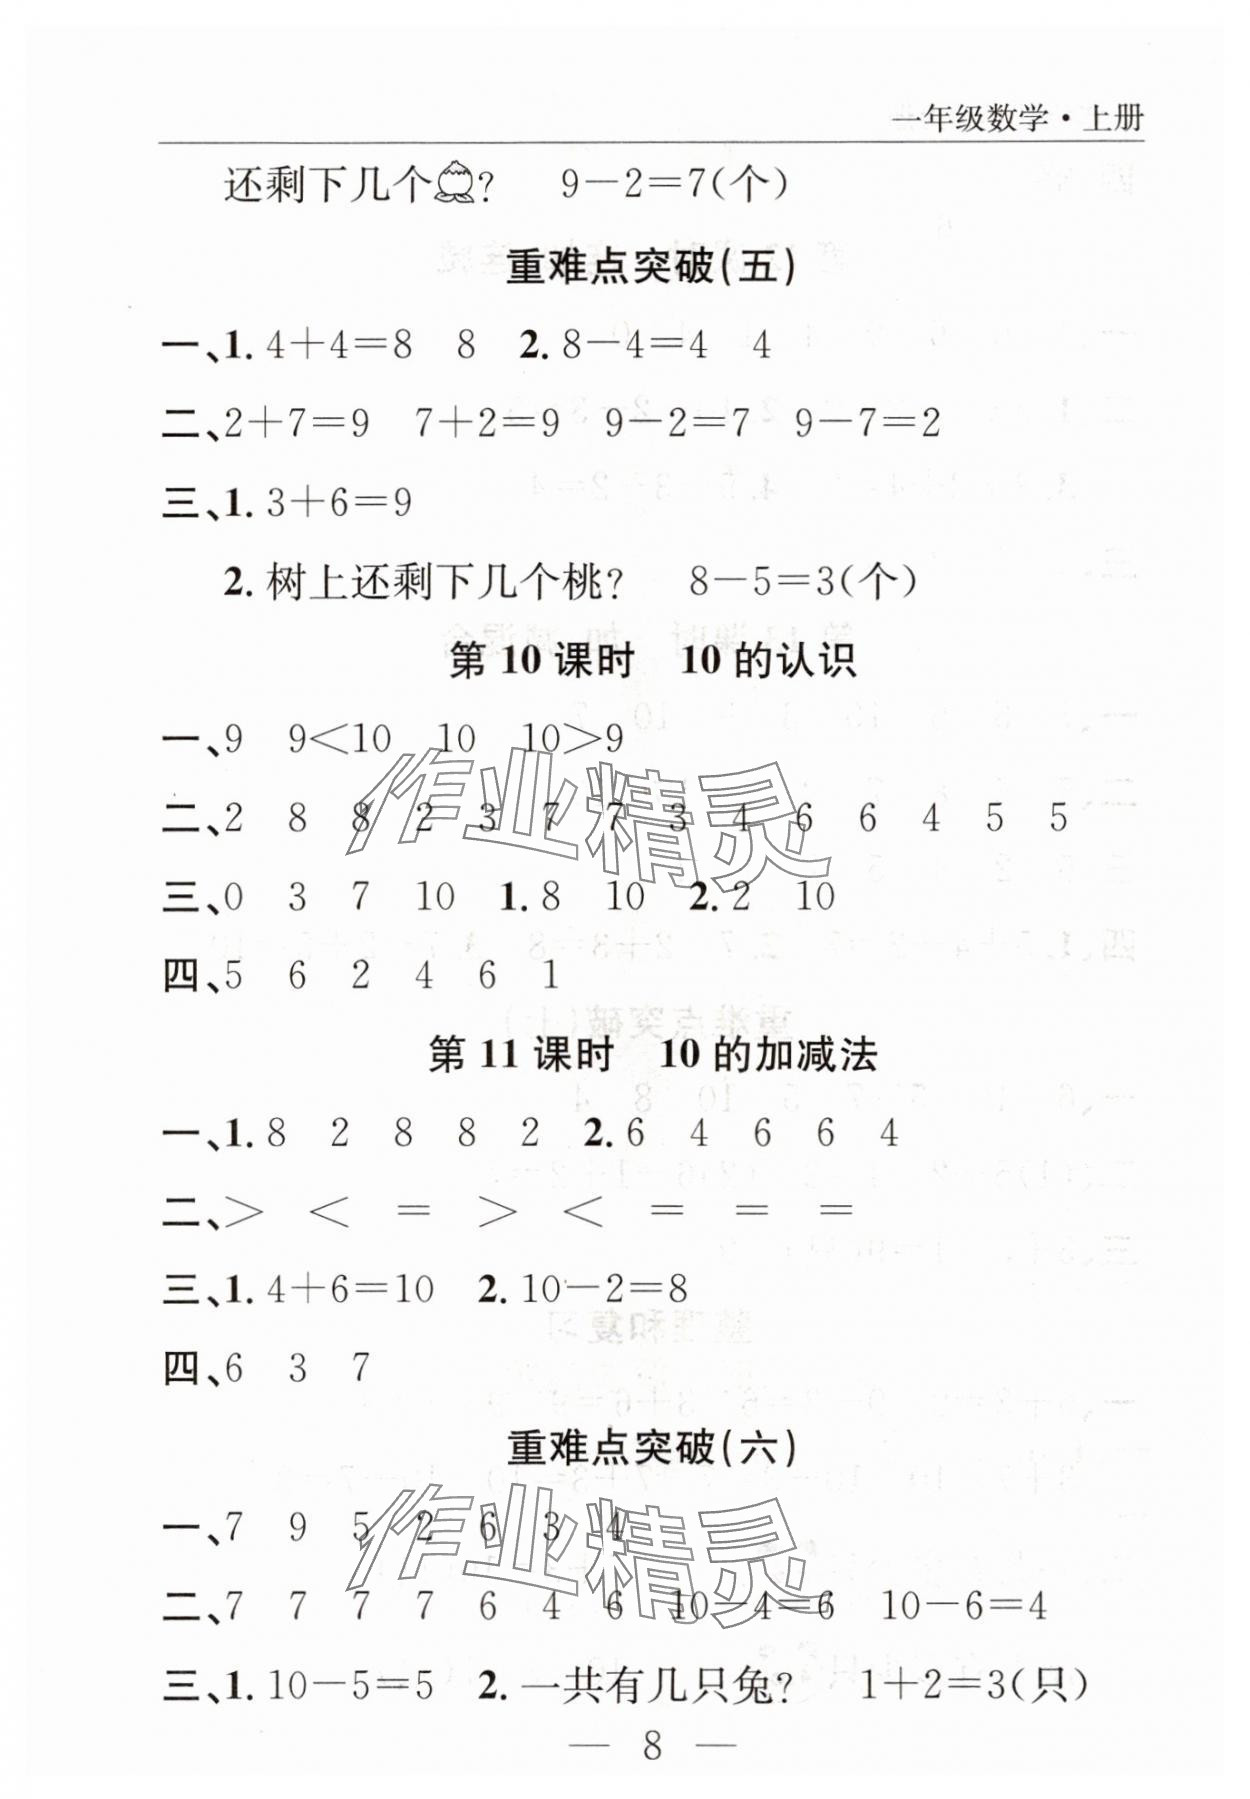 一年级数学·上册
还剩下几个? 9-2=7(个)
重难点突破(五)
一、1. 4+4=8 8 2. 8-4=4 4
二、2+7=9 7+2=9 9-2=7 9-7=2
三、1. 3+6=9
2. 树上还剩下几个桃? 8-5=3(个)
第10课时 10的认识
一、9 9<10 10 10>9
二、2 8 8 2 3 7 7 3 4 6 6 4 5 5
三、0 3 7 10 1. 8 10 2. 2 10
四、5 6 2 4 6 1
第11课时 10的加减法
一、1. 8 2 8 8 2 2. 6 4 6 6 4
二、> < = > < = = =
三、1. 4+6=10 2. 10-2=8
四、6 3 7
重难点突破(六)
一、7 9 5 2 6 3 4
二、7 7 7 7 6 4 6 10-4=6 10-6=4
三、1. 10-5=5 2. 一共有几只兔? 1+2=3(只)
— 8 —
作业精灵
作业精灵